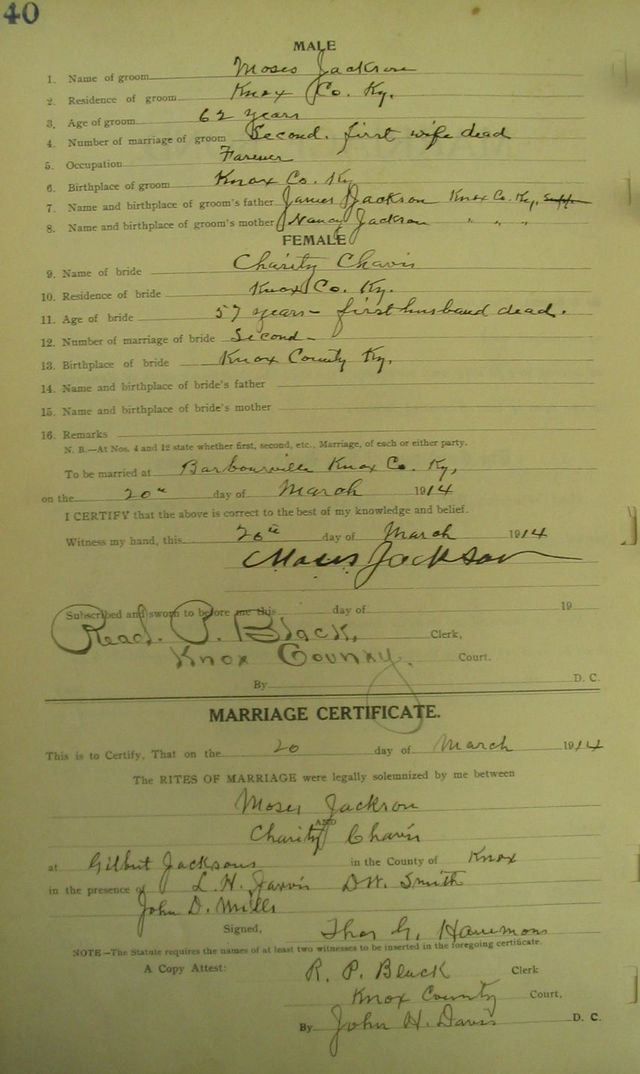 40
MALE
1. Name of groom Moses Jackson
2. Residence of groom Knox Co. Ky.
3. Age of groom 62 years
4. Number of marriage of groom Second. first wife dead
5. Occupation Farmer
6. Birthplace of groom Knox Co. Ky
7. Name and birthplace of groom's father James Jackson Knox Co. Ky,
8. Name and birthplace of groom's mother Nancy Jackson " " "
FEMALE
9. Name of bride Charity Chavis
10. Residence of bride Knox Co. Ky.
11. Age of bride 57 years - first husband dead.
12. Number of marriage of bride Second -
13. Birthplace of bride Knox County Ky.
14. Name and birthplace of bride's father
15. Name and birthplace of bride's mother
16. Remarks
N. B.—At Nos. 4 and 12 state whether first, second, etc., Marriage, of each or either party.
To be married at Barbourville Knox Co. Ky,
on the 20th day of March 1914
I CERTIFY that the above is correct to the best of my knowledge and belief.
Witness my hand, this 20th day of March 1914
Moses Jackson
Subscribed and sworn to before me this day of 19
Read. P. Black, Clerk,
Knox County. Court.
By D. C.
MARRIAGE CERTIFICATE.
This is to Certify, That on the 20 day of March 1914
The RITES OF MARRIAGE were legally solemnized by me between
Moses Jackson
AND
Charity Chavis
at Gilbert Jacksons in the County of Knox
in the presence of L. H. Jarvis D.W. Smith
John D. Mills
Signed, Thos G. Hammons
NOTE—The Statute requires the names of at least two witnesses to be inserted in the foregoing certificate.
A Copy Attest: R. P. Black Clerk
Knox County Court,
By John H. Davis D. C.